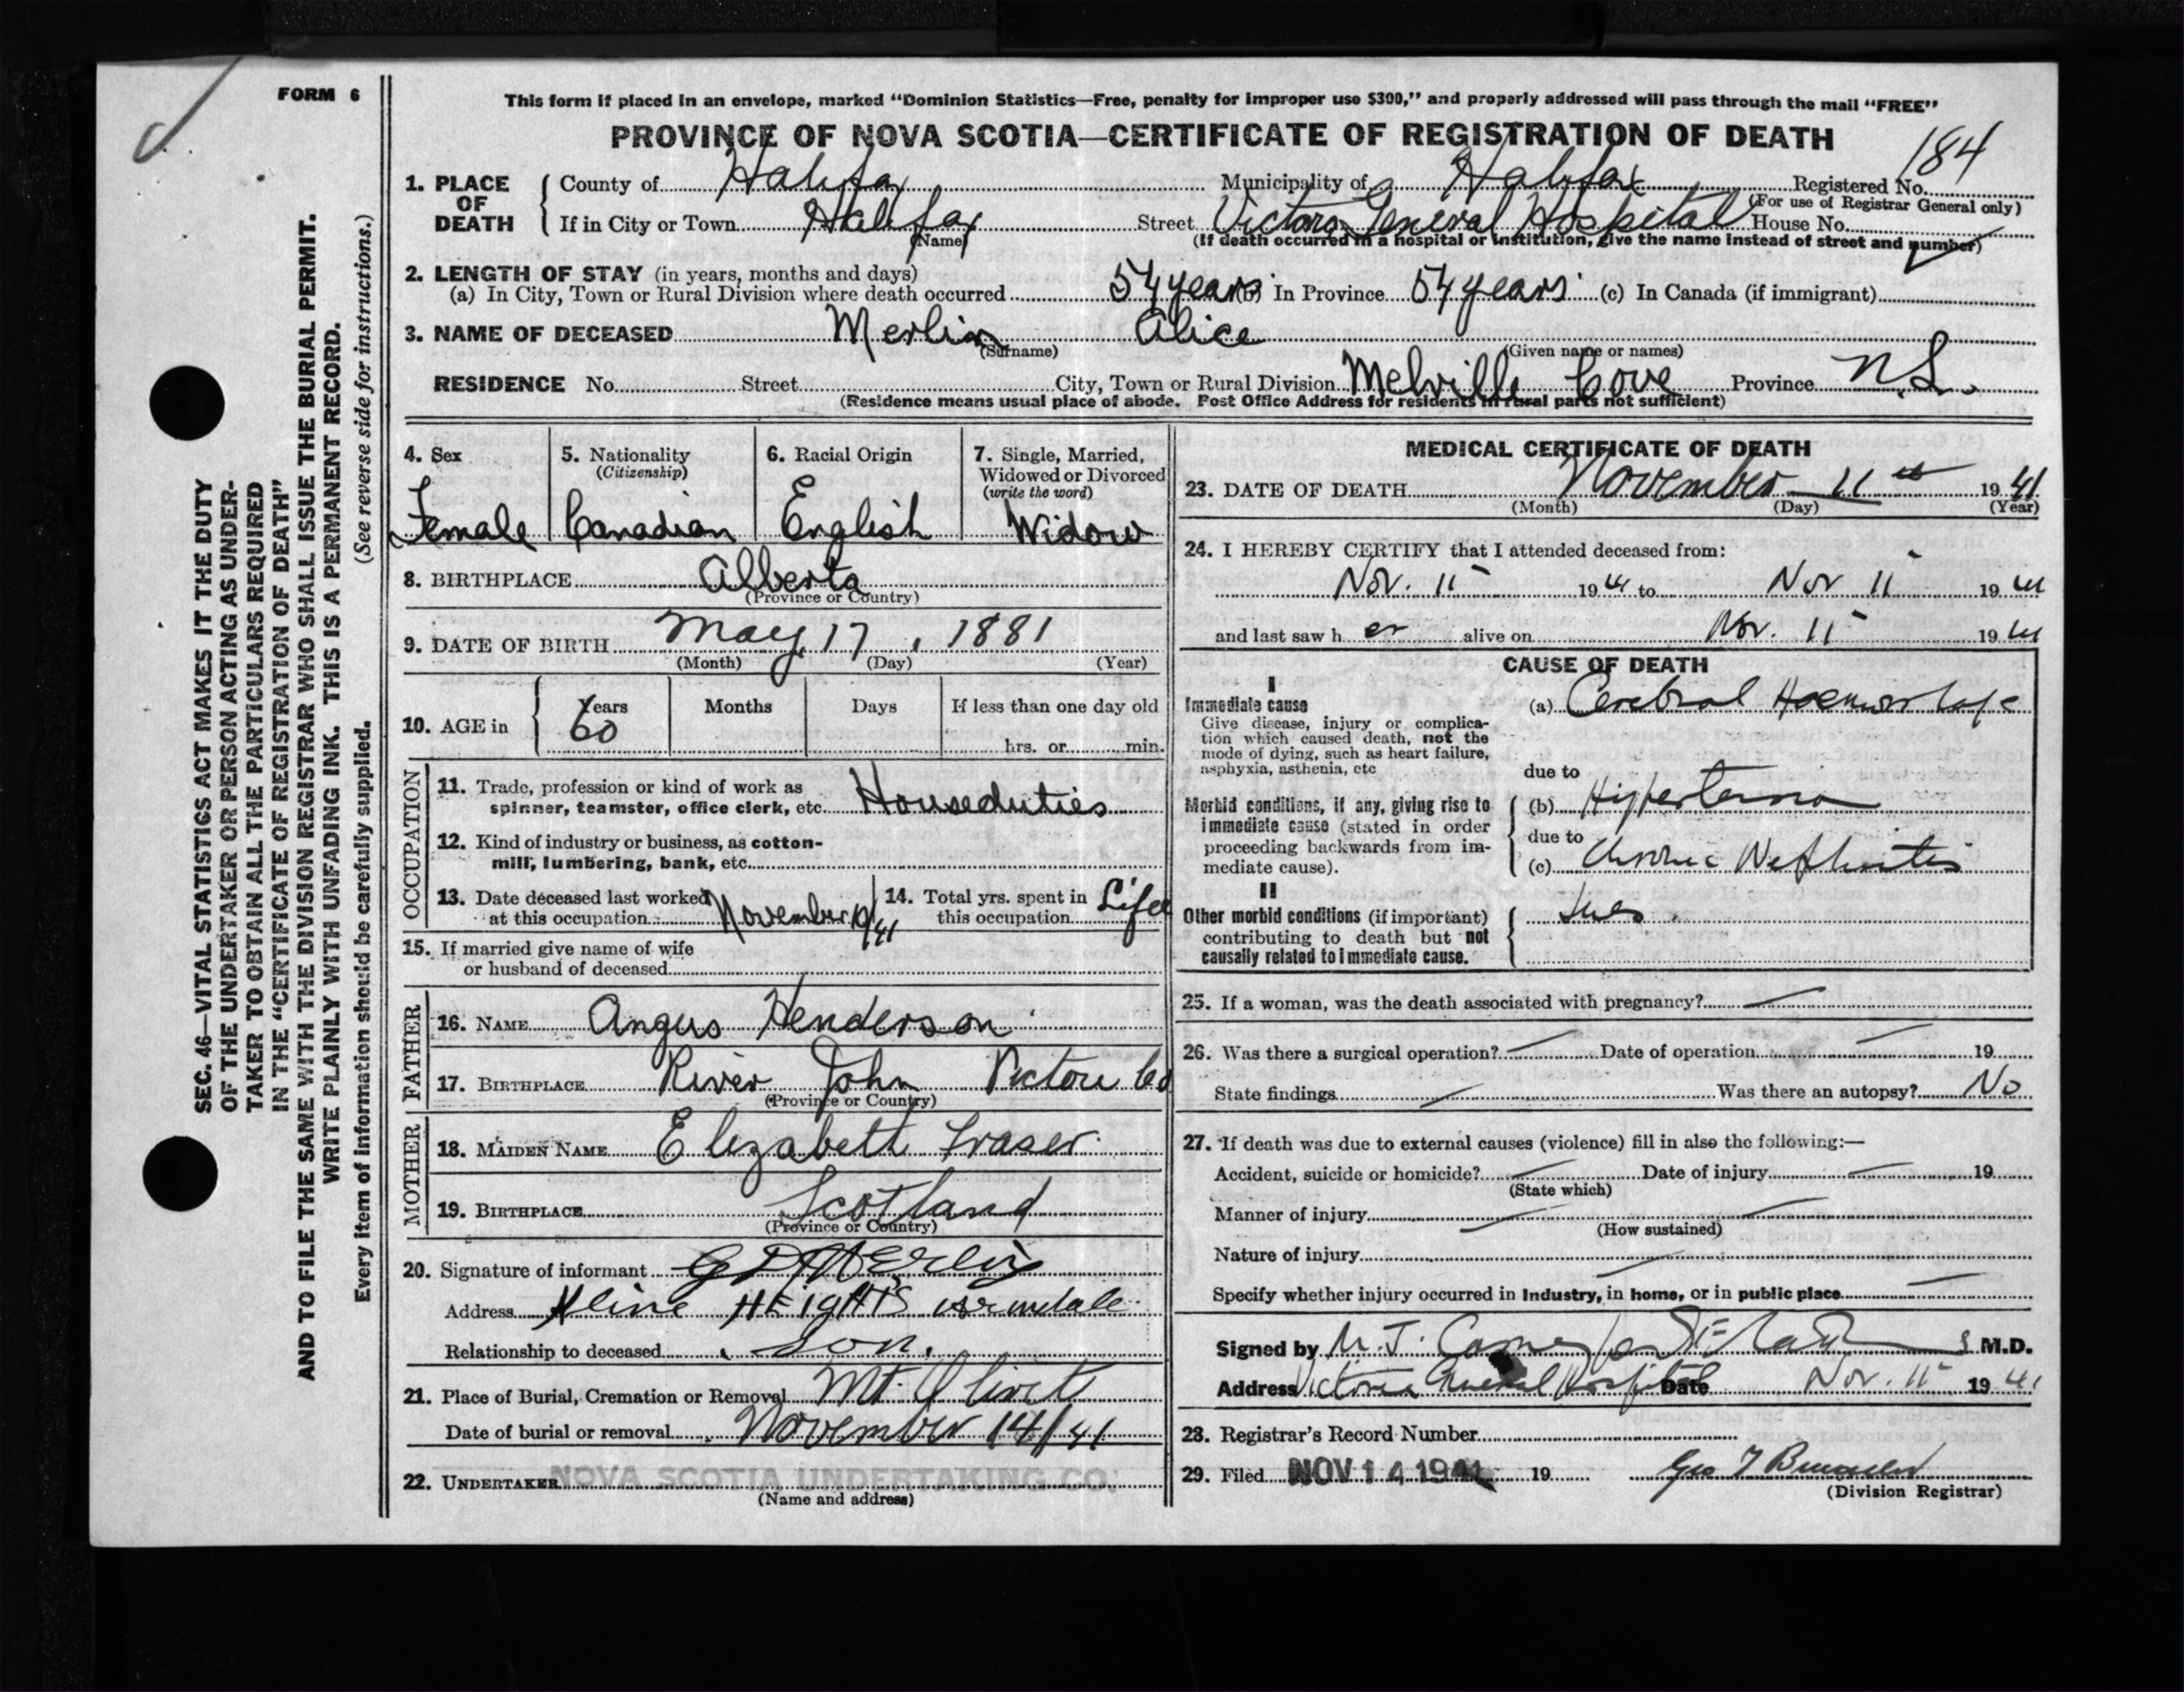 FORM 6
This form if placed in an envelope, marked "Dominion Statistics—Free, penalty for improper use $300," and properly addressed will pass through the mail "FREE"
PROVINCE OF NOVA SCOTIA—CERTIFICATE OF REGISTRATION OF DEATH
184
1. PLACE OF DEATH County of Halifax Municipality of Halifax Registered No.
(For use of Registrar General only)
If in City or Town Halifax Street Victoria General Hospital House No.
(Name) (If death occurred in a hospital or institution, give the name instead of street and number)
2. LENGTH OF STAY (in years, months and days)
(a) In City, Town or Rural Division where death occurred 54 years (b) In Province 54 years (c) In Canada (if immigrant)
3. NAME OF DECEASED Merlin Alice
(Surname) (Given name or names)
RESIDENCE No. Street City, Town or Rural Division Melville Cove Province N.S.
(Residence means usual place of abode. Post Office Address for residents in rural parts not sufficient)
4. Sex 5. Nationality (Citizenship) 6. Racial Origin 7. Single, Married, Widowed or Divorced (write the word)
Female Canadian English Widow
8. BIRTHPLACE Alberta
(Province or Country)
9. DATE OF BIRTH May 17, 1881
(Month) (Day) (Year)
10. AGE in Years Months Days If less than one day old
60 hrs. or min.
OCCUPATION
11. Trade, profession or kind of work as
spinner, teamster, office clerk, etc. Houseduties
12. Kind of industry or business, as cotton-
mill, lumbering, bank, etc.
13. Date deceased last worked at this occupation November /41
14. Total yrs. spent in this occupation Life
15. If married give name of wife
or husband of deceased
FATHER
16. NAME Angus Henderson
17. BIRTHPLACE River John Pictou Co
(Province or Country)
MOTHER
18. MAIDEN NAME Elizabeth Fraser
19. BIRTHPLACE Scotland
(Province or Country)
20. Signature of informant G D Merlin
Address Kline HEIGHTS Armdale
Relationship to deceased Son.
21. Place of Burial, Cremation or Removal Mt. Olivet
Date of burial or removal November 14/41
22. UNDERTAKER NOVA SCOTIA UNDERTAKING CO.
(Name and address)
MEDICAL CERTIFICATE OF DEATH
23. DATE OF DEATH November 11th 1941
(Month) (Day) (Year)
24. I HEREBY CERTIFY that I attended deceased from:
Nov. 11 1941 to Nov 11 1941
and last saw her alive on Nov. 11 1941
CAUSE OF DEATH
I
Immediate cause (a) Cerebral Haemorrhage
Give disease, injury or complica-
tion which caused death, not the
mode of dying, such as heart failure,
asphyxia, asthenia, etc
due to
Morbid conditions, if any, giving rise to (b) Hypertension
immediate cause (stated in order due to
proceeding backwards from im-
mediate cause). (c) Chronic Nephritis
II
Other morbid conditions (if important) Lues.
contributing to death but not
causally related to immediate cause.
25. If a woman, was the death associated with pregnancy? —
26. Was there a surgical operation? — Date of operation — 19
State findings — Was there an autopsy? No
27. If death was due to external causes (violence) fill in also the following:—
Accident, suicide or homicide? — Date of injury — 19
(State which)
Manner of injury —
(How sustained)
Nature of injury —
Specify whether injury occurred in Industry, in home, or in public place —
Signed by M.D.
Address Victoria General Hospital Date Nov. 11 1941
28. Registrar's Record Number
29. Filed NOV 14 1941 19
(Division Registrar)
SEC. 46—VITAL STATISTICS ACT MAKES IT THE DUTY
OF THE UNDERTAKER OR PERSON ACTING AS UNDER-
TAKER TO OBTAIN ALL THE PARTICULARS REQUIRED
IN THE "CERTIFICATE OF REGISTRATION OF DEATH"
AND TO FILE THE SAME WITH THE DIVISION REGISTRAR WHO SHALL ISSUE THE BURIAL PERMIT.
WRITE PLAINLY WITH UNFADING INK. THIS IS A PERMANENT RECORD.
Every item of information should be carefully supplied. (See reverse side for instructions.)